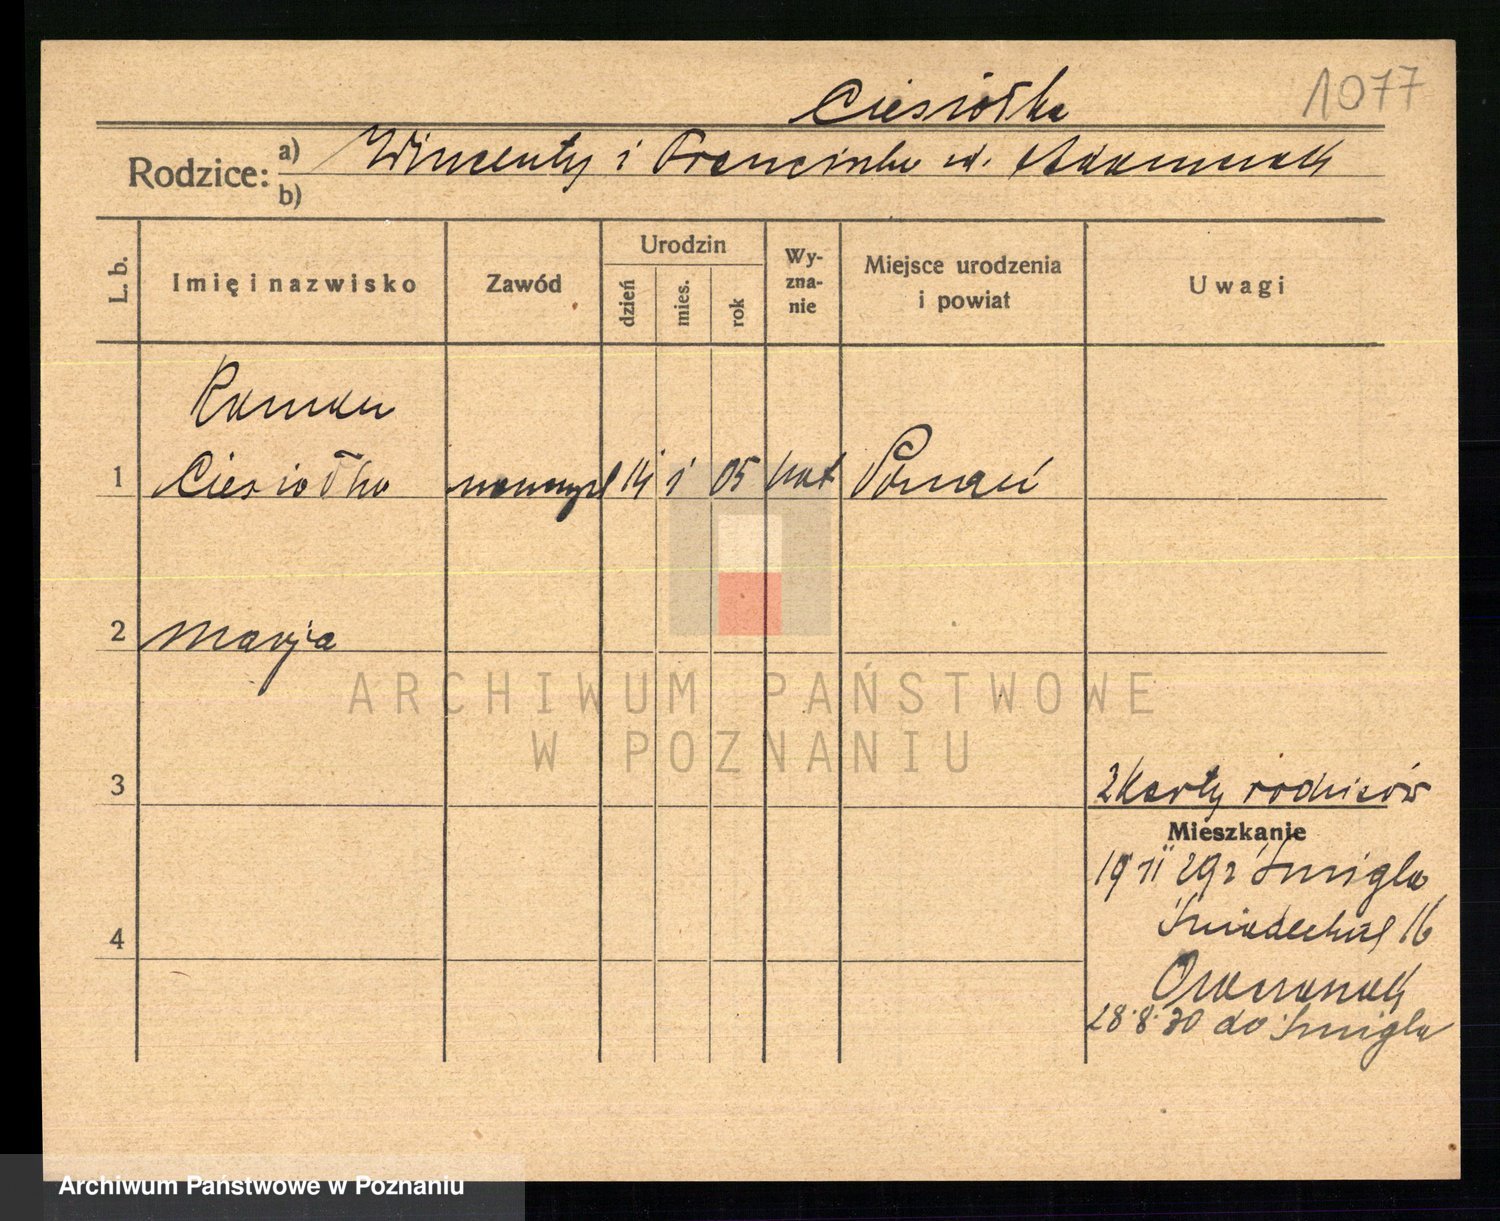 1077
Ciesiółka
Rodzice: a) Wincenty i Franciszka z d. Adamczak
b)
L. b.
Imię i nazwisko
Zawód
Urodzin
dzień
mies.
rok
Wy-
zna-
nie
Miejsce urodzenia
i powiat
Uwagi
Roman
1 Ciesiołka 14 1 05 kat Poznań
2 Marja
3
2 Karty rodziców
Mieszkanie
19 11 29 z Śmigla
4
Śniadeckich 16
28.8.30 do Śmigla
ARCHIWUM PAŃSTWOWE
W POZNANIU
Archiwum Państwowe w Poznaniu